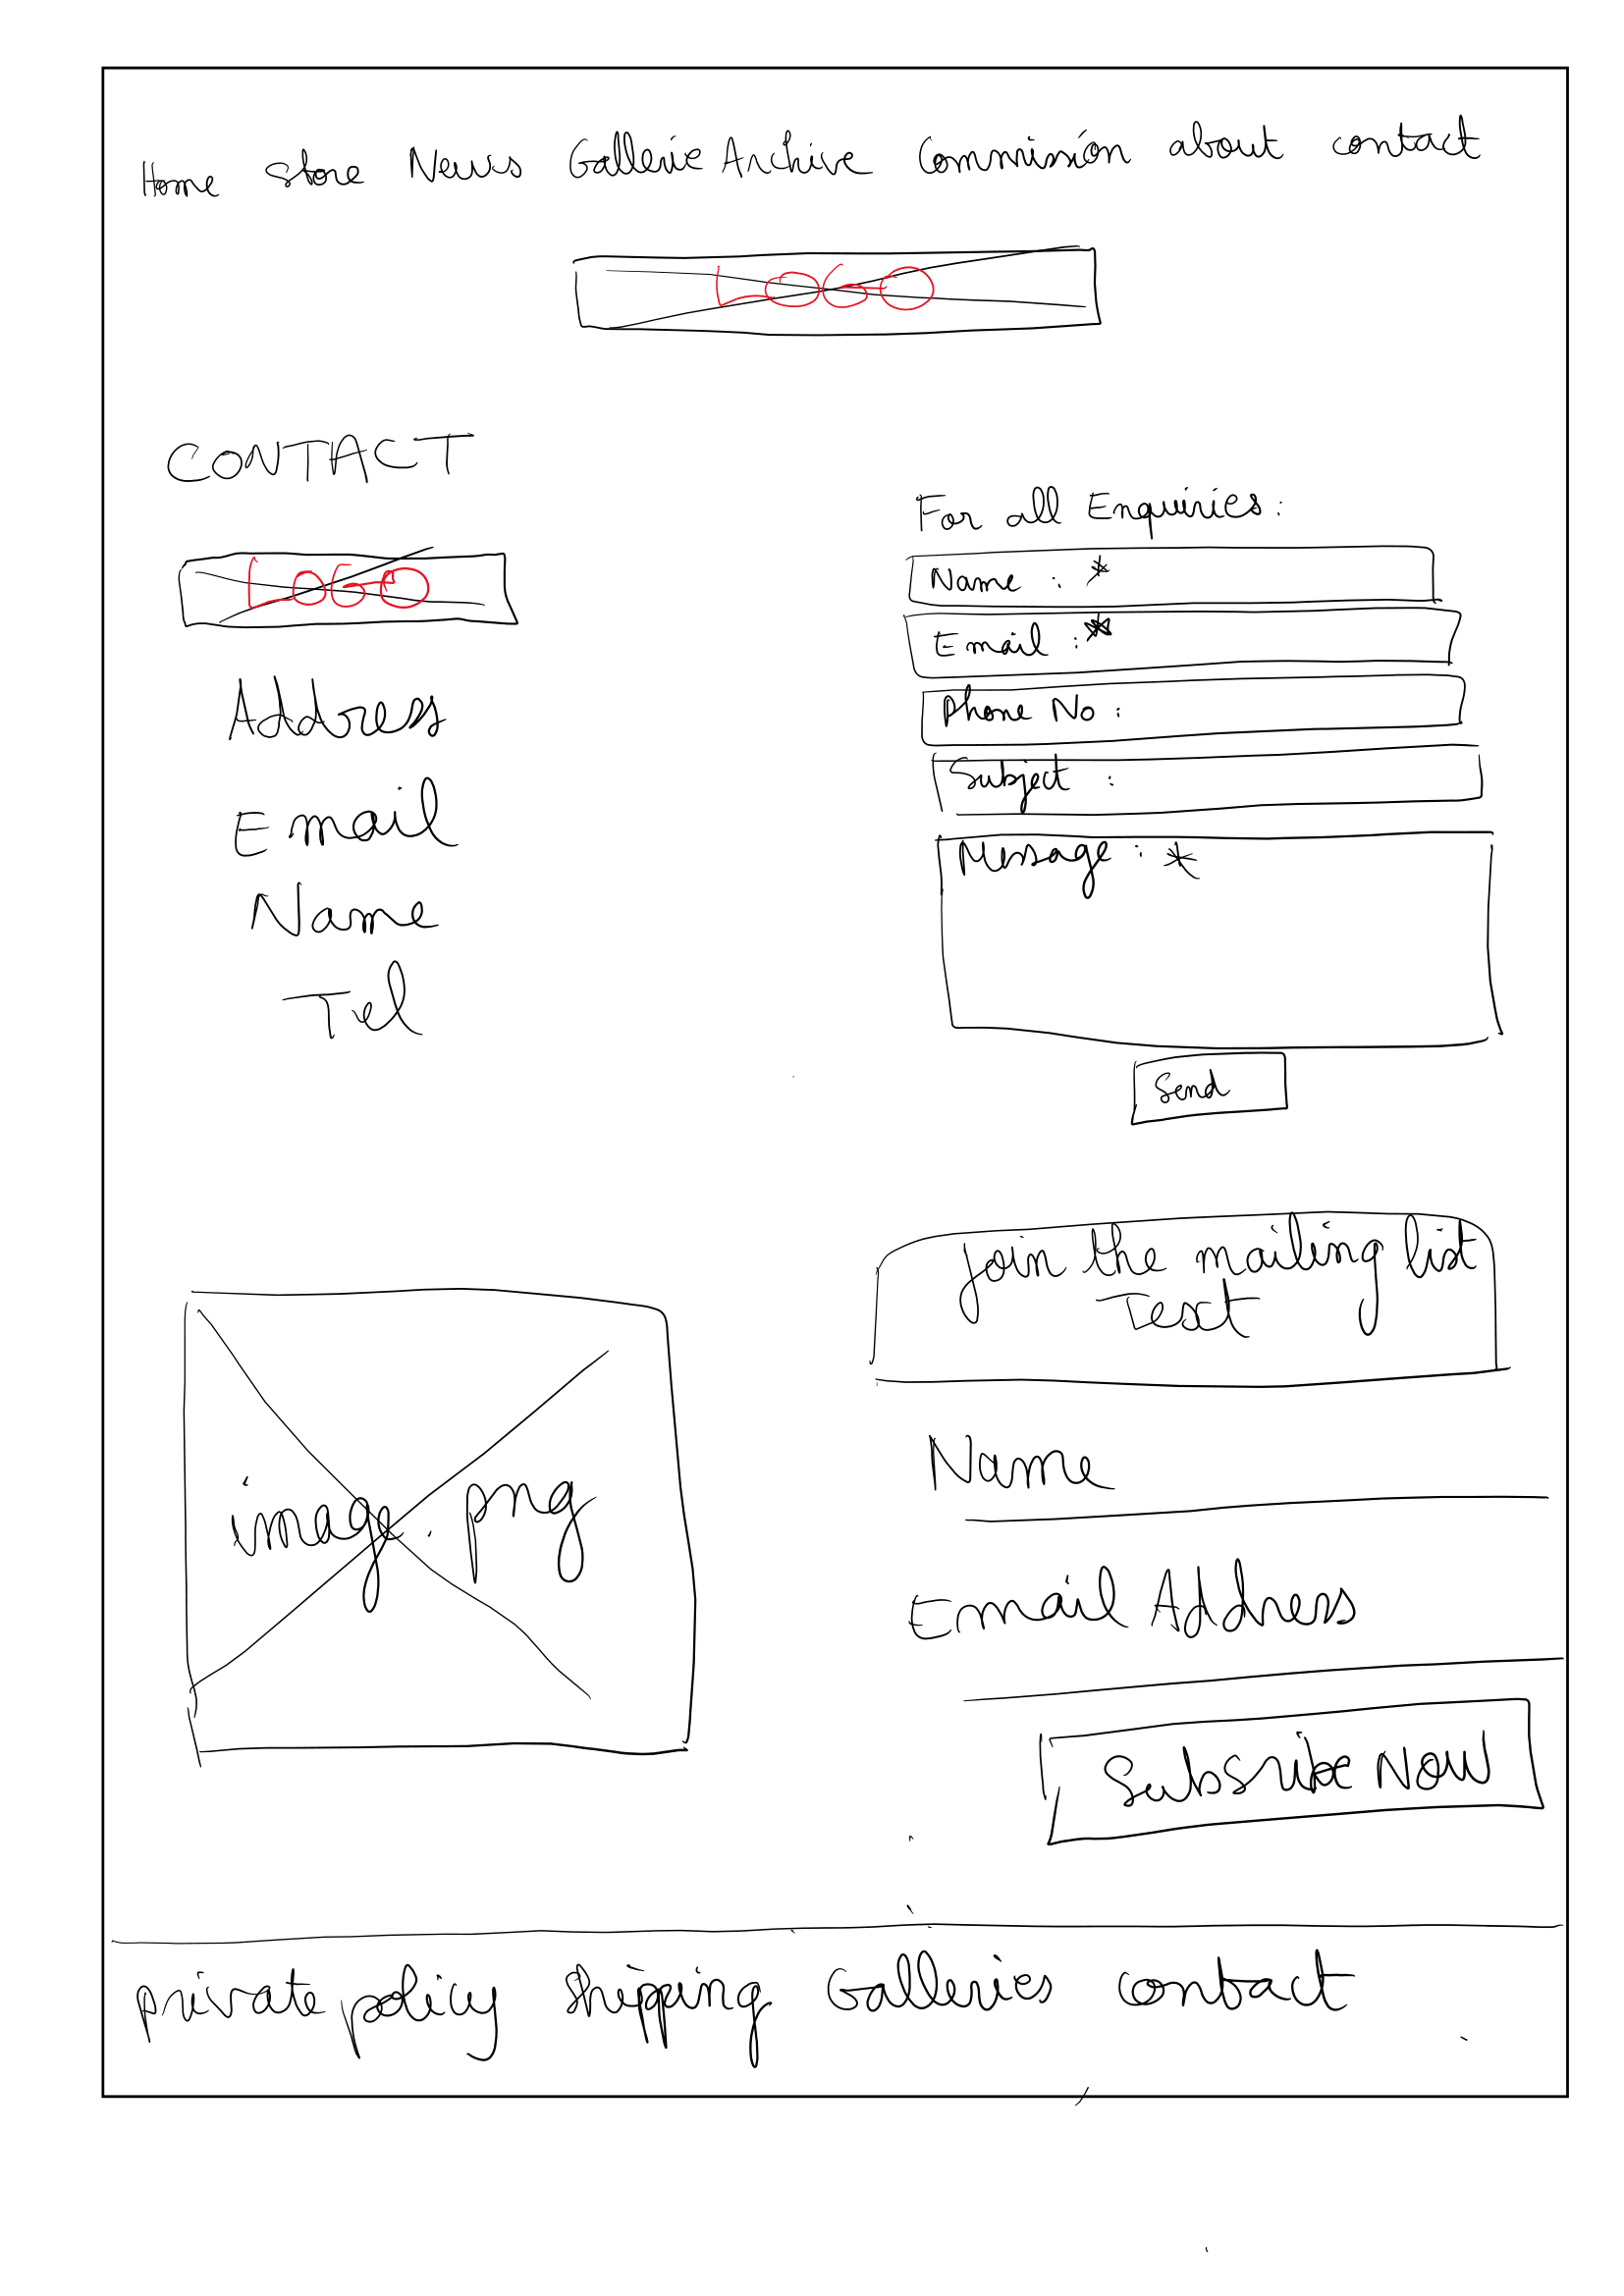 Home Store News Gallerie Archive Commission about contact
LOGO
CONTACT
LOGO
Address
Email
Name
Tel
For all Enquiries:
Name : *
Email : *
Phone No :
Subject :
Message : *
Send
image.png
join the mailing list
Text
Name
Email Address
Subsribe NOW
private policy Shipping Galleries contact